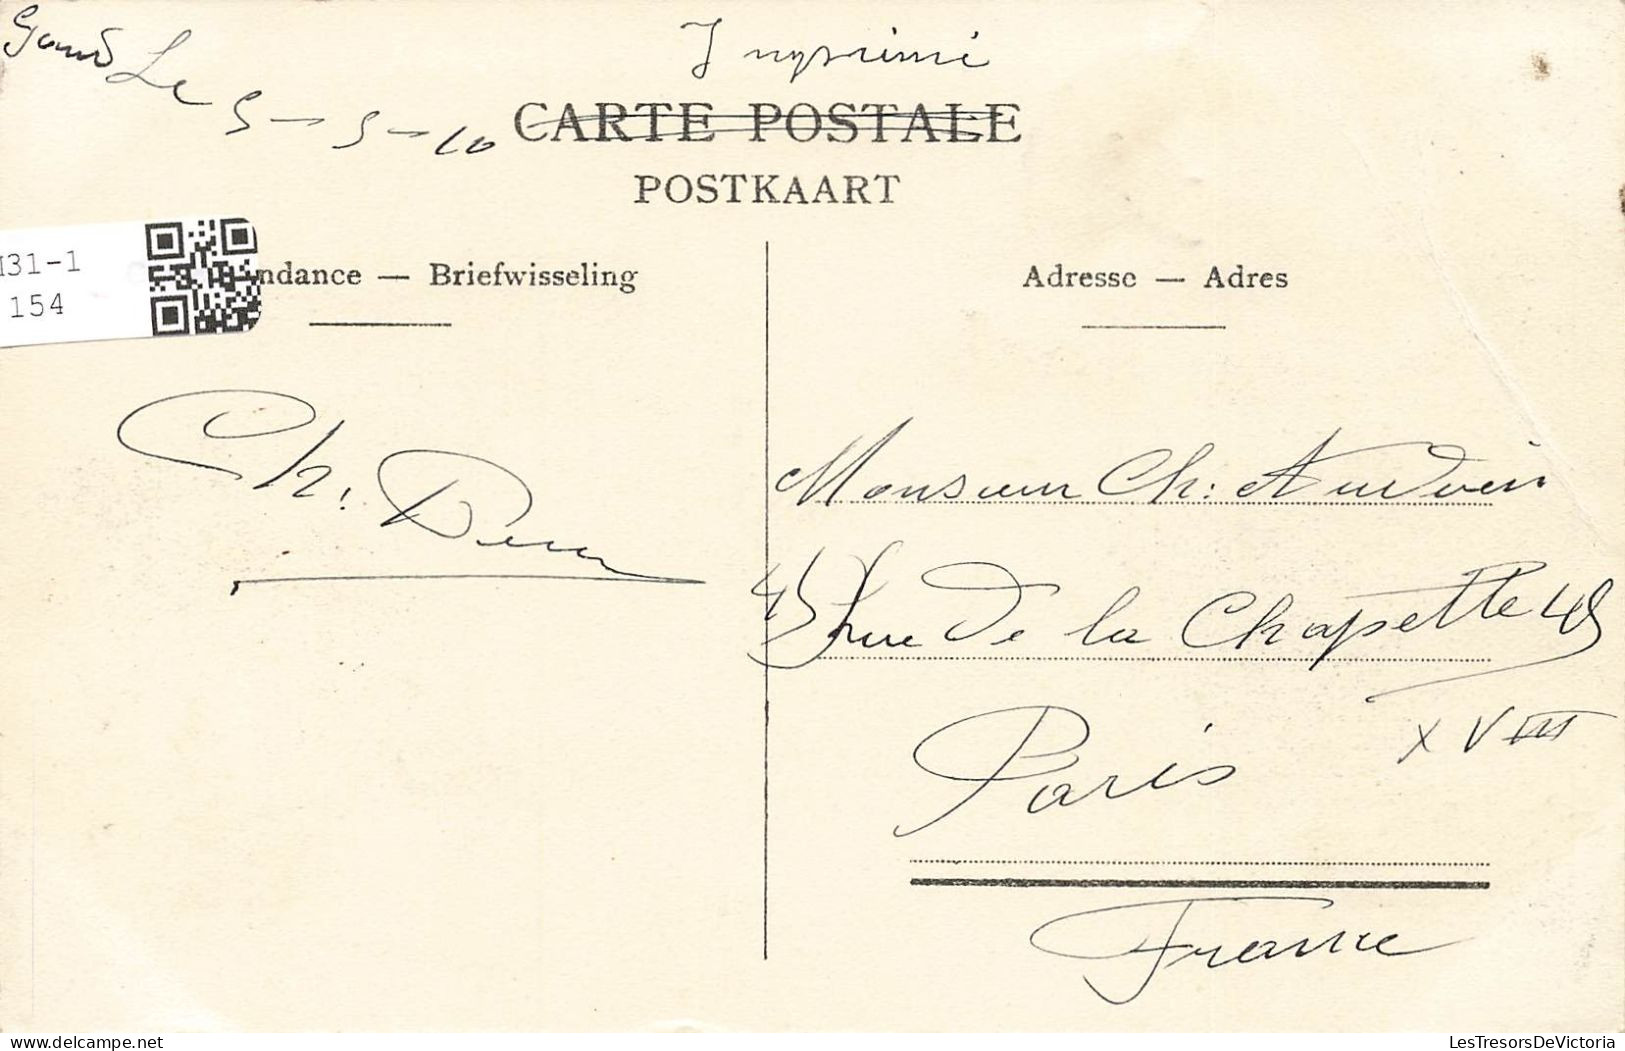 Gand Le 5-5-10
Imprimé
CARTE POSTALE
POSTKAART
131-1
154
ndance — Briefwisseling
Adresse — Adres
Ch.
Monsieur Ch. Audouin
45 rue de la Chapelle 45
XVIII
Paris
France
delcampe.net
LesTresorsDeVictoria